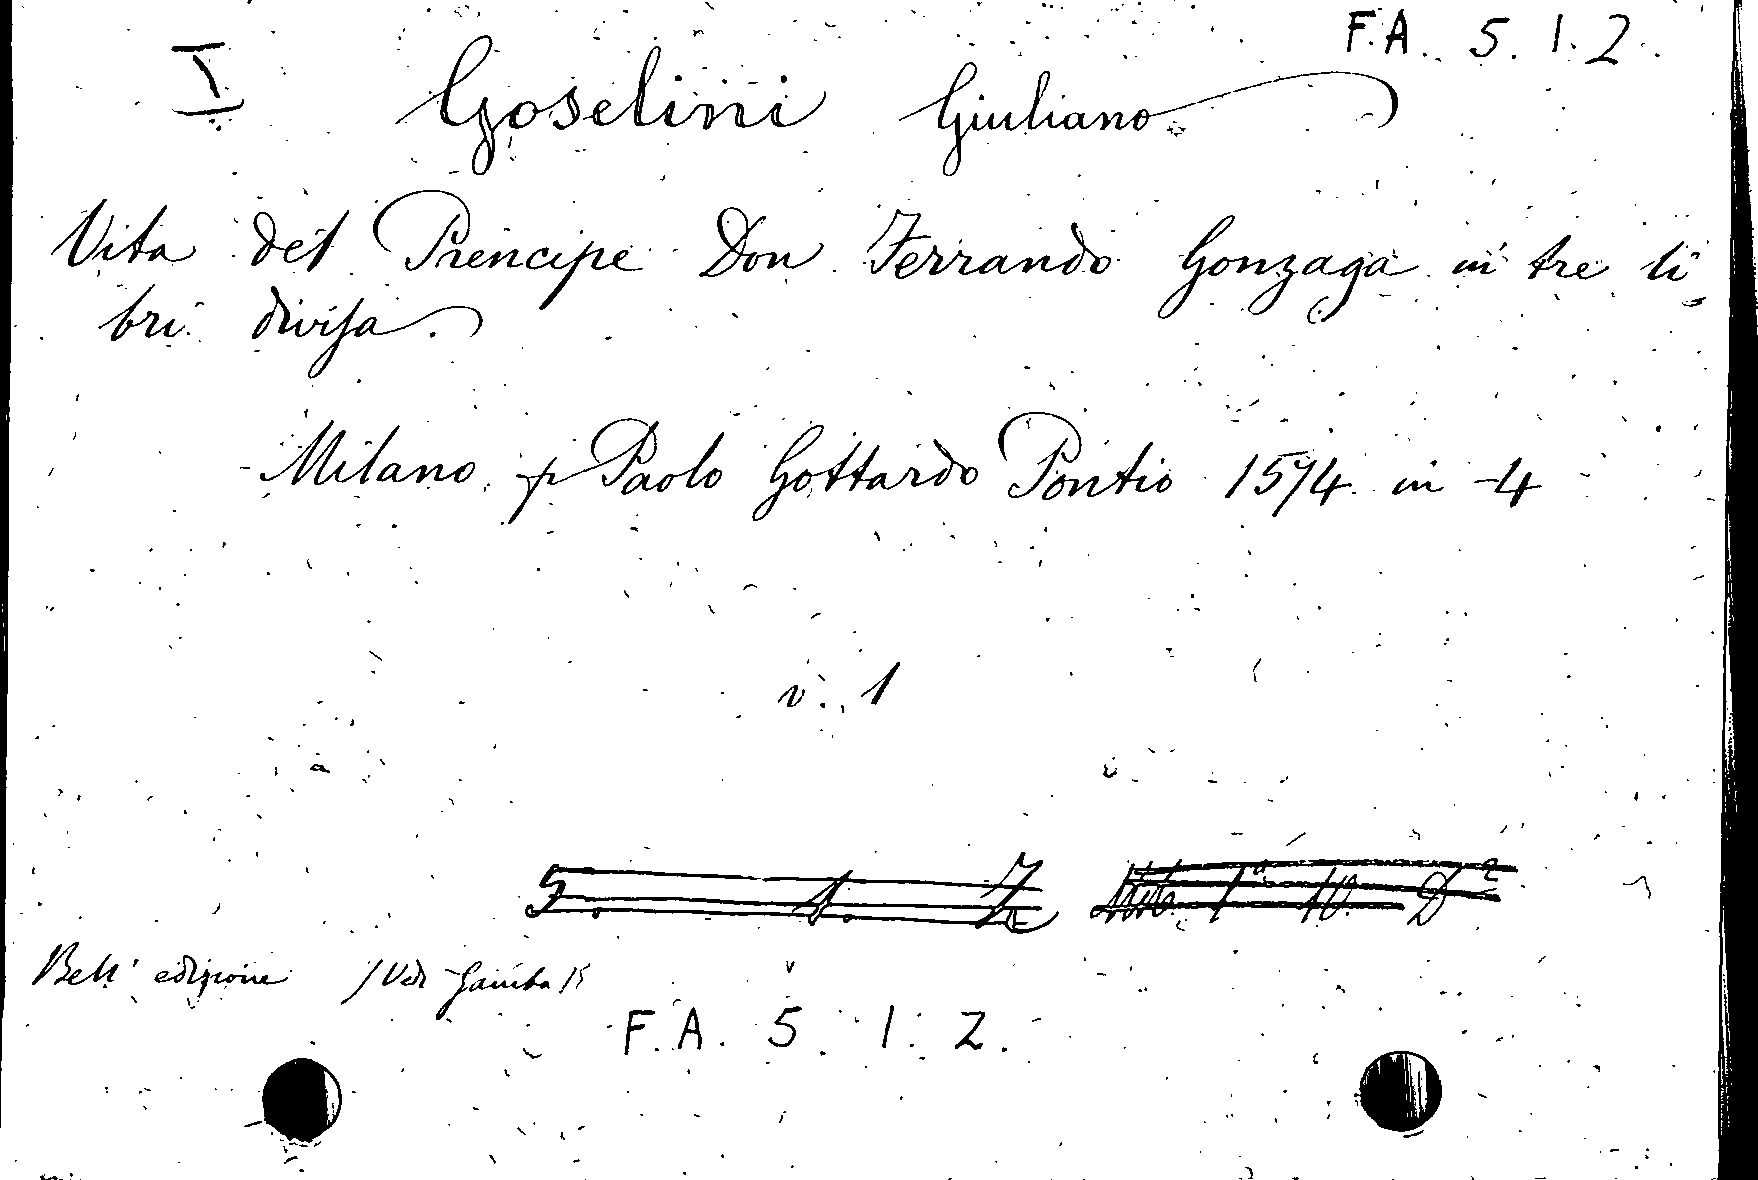 F.A. 5. 1. 2.
I Goselini Giuliano
Vita del Principe Don Ferrando Gonzaga in tre li
bri divisa.
Milano p Paolo Gottardo Pontio 1574 in 4
v. 1
5. 1. 
Bell' edizione / Vedi Gamba
F. A. 5. 1. 2.